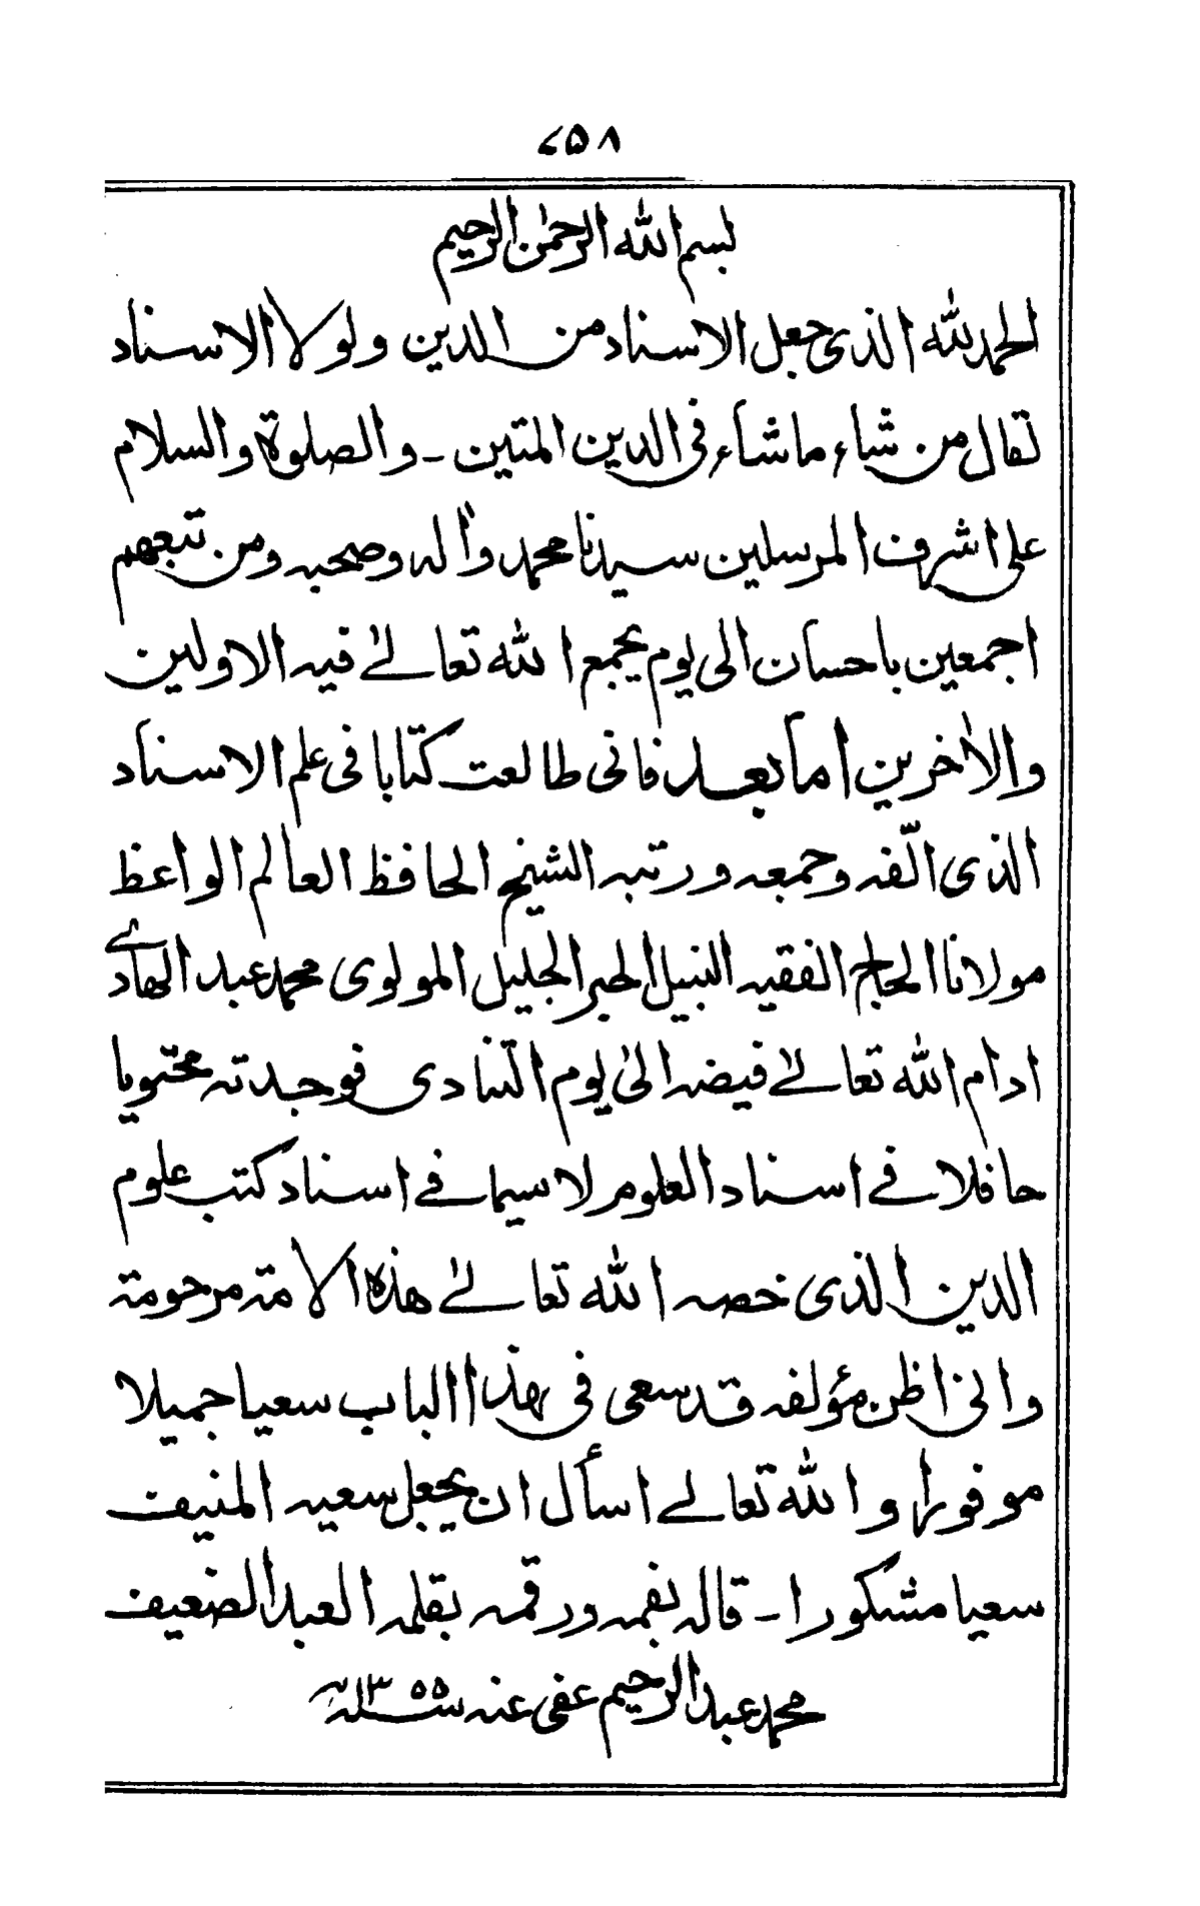 ۴۵۸
بسم الله الرحمٰن الرحيم
الحمد لله الذى جعل الاسناد من الدين ولولا الاسناد
لقال من شاء ماشاء فى الدين المتين ـ والصلوة والسلام
على اشرف المرسلين سيدنا محمد واٰله وصحبه ومن تبعهم
اجمعين باحسان الى يوم يجمع الله تعالےٰ فيه الاولين
والاٰخرين اما بعد فانى طالعت كتابا فى علم الاسناد
الذى الّفه وجمعه ورتبه الشيخ الحافظ العالم الواعظ
مولانا الحاج الفقيه النبيل الحبر الجليل المولوى محمد عبد الهادے
ادام الله تعالےٰ فيضه الىٰ يوم التنادى فوجدته محتويا
حافلا فے اسناد العلوم لا سيما فے اسناد كتب علوم
الدين الذى خصه الله تعالےٰ هذه الامة مرحومة
وانى اظن مؤلفه قد سعى فى هذا الباب سعيا جميلا
موفورا و الله تعالے اسأل ان يجعل سعيه المنيف
سعيا مشكورا ـ قاله بفمه ورقمه بقلمه العبد الضعيف
محمد عبد الرحيم عفى عنه سنه ۱۳۵۵ ھ